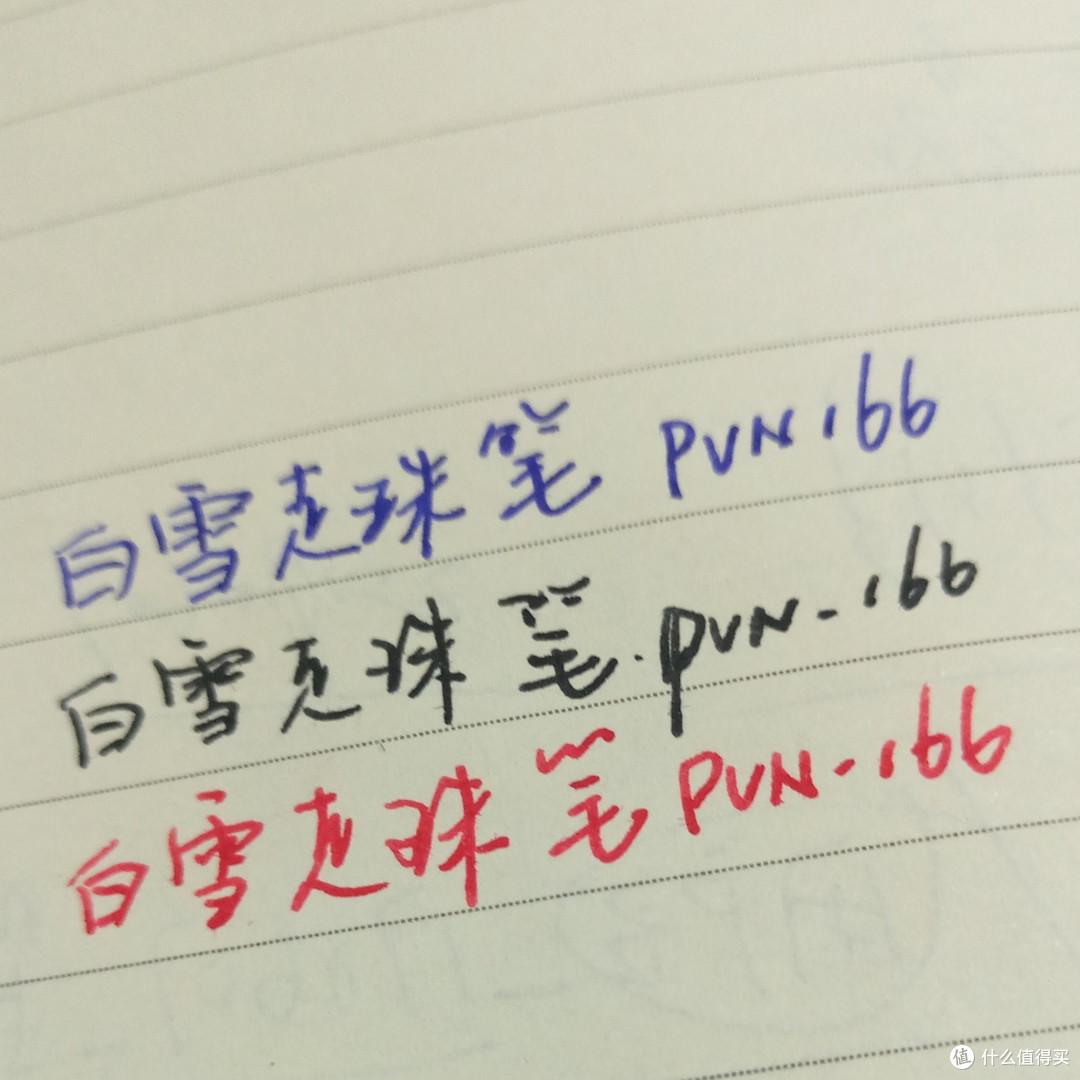 白雪走珠笔 PVN166
白雪走珠笔.PVN-166
白雪走珠笔 PVN-166
值 什么值得买